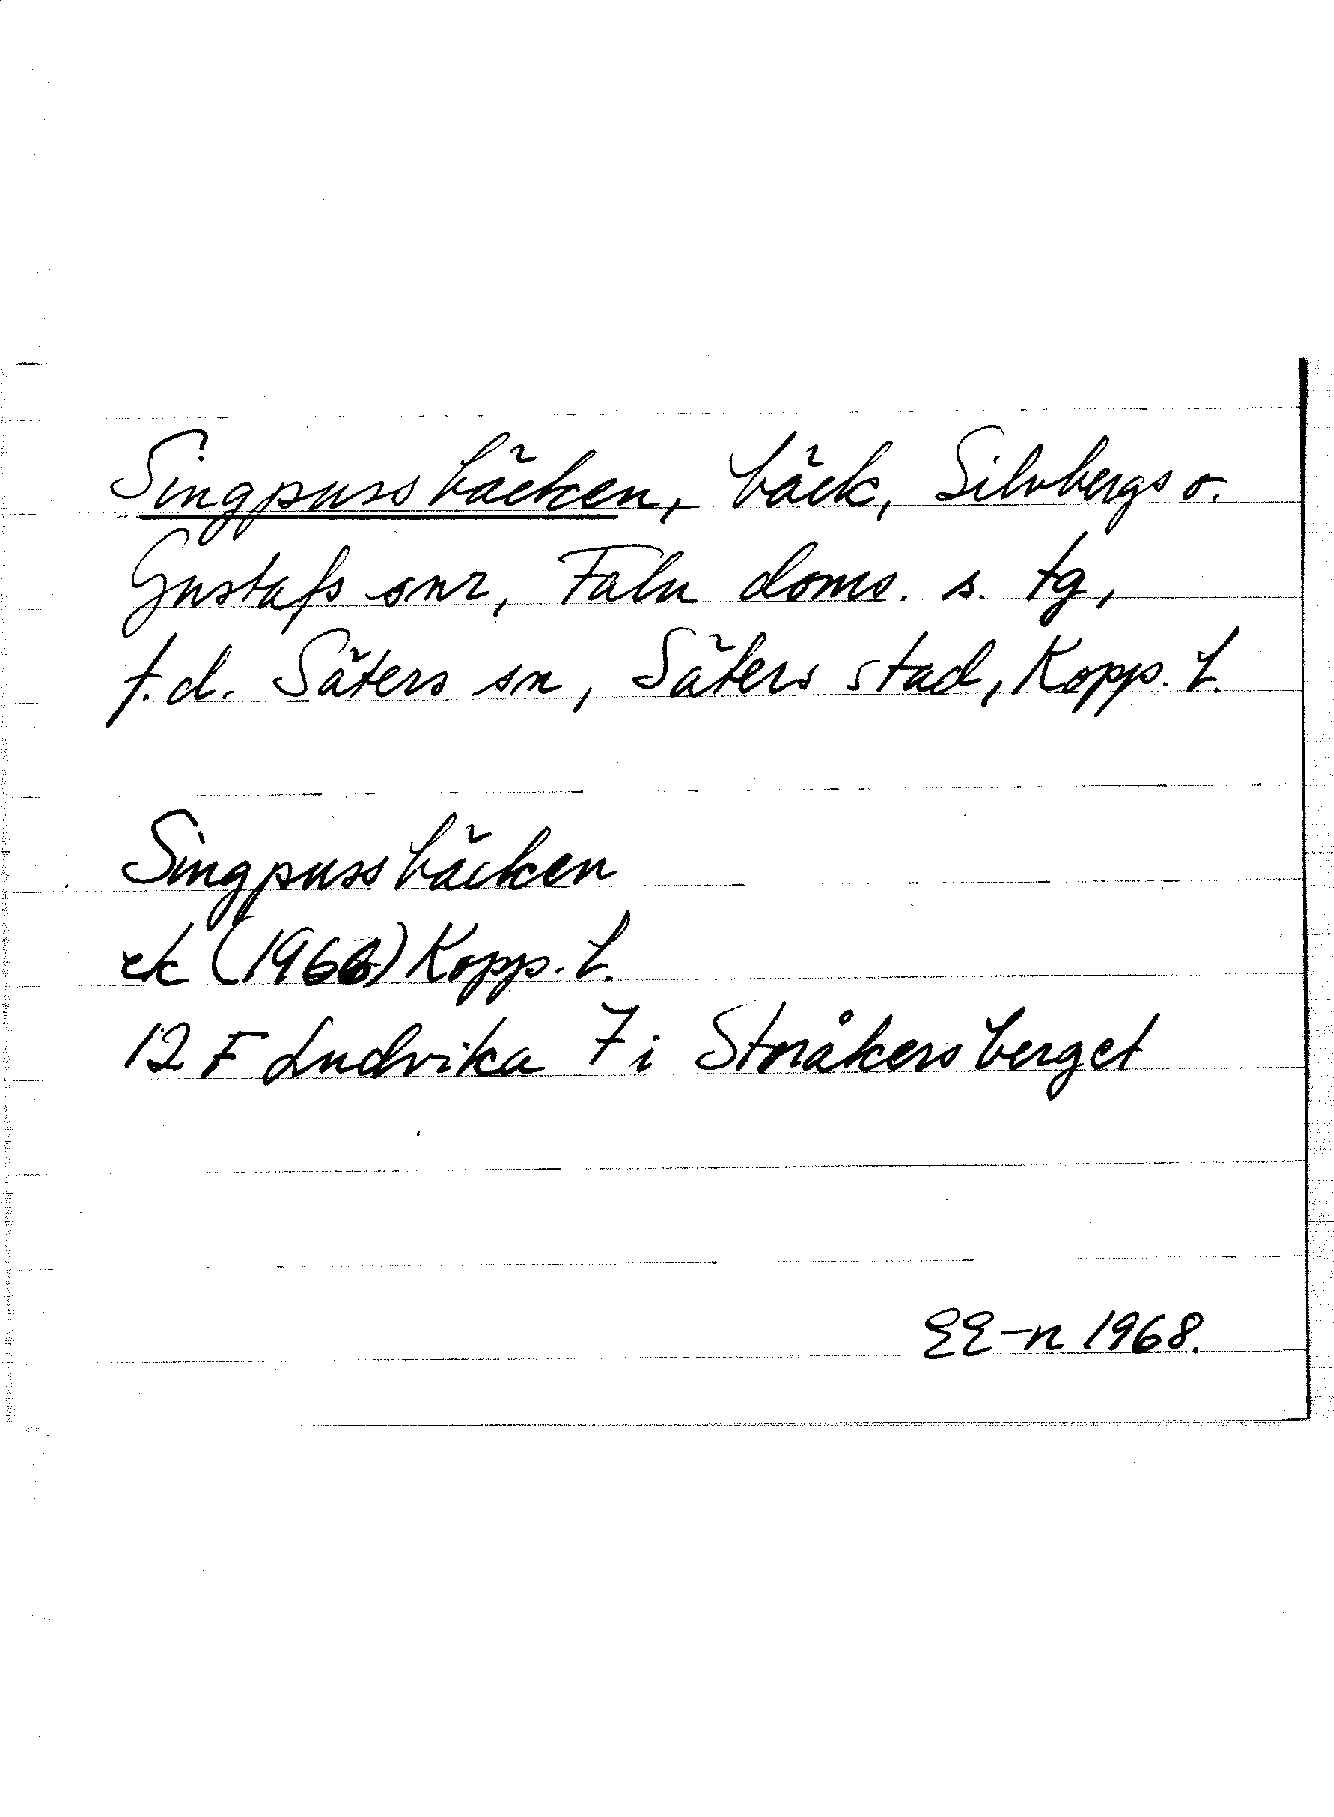 Singpussbäcken, bäck, Silvbergs o.
Gustafs snr, Falu doms. s. tg,
f.d. Säters sn, Säters stad, Kopp. l.
Singpussbäcken
ek (1966) Kopp. l.
12 F Ludvika 7 i Storåkersberget
EE-n 1968.